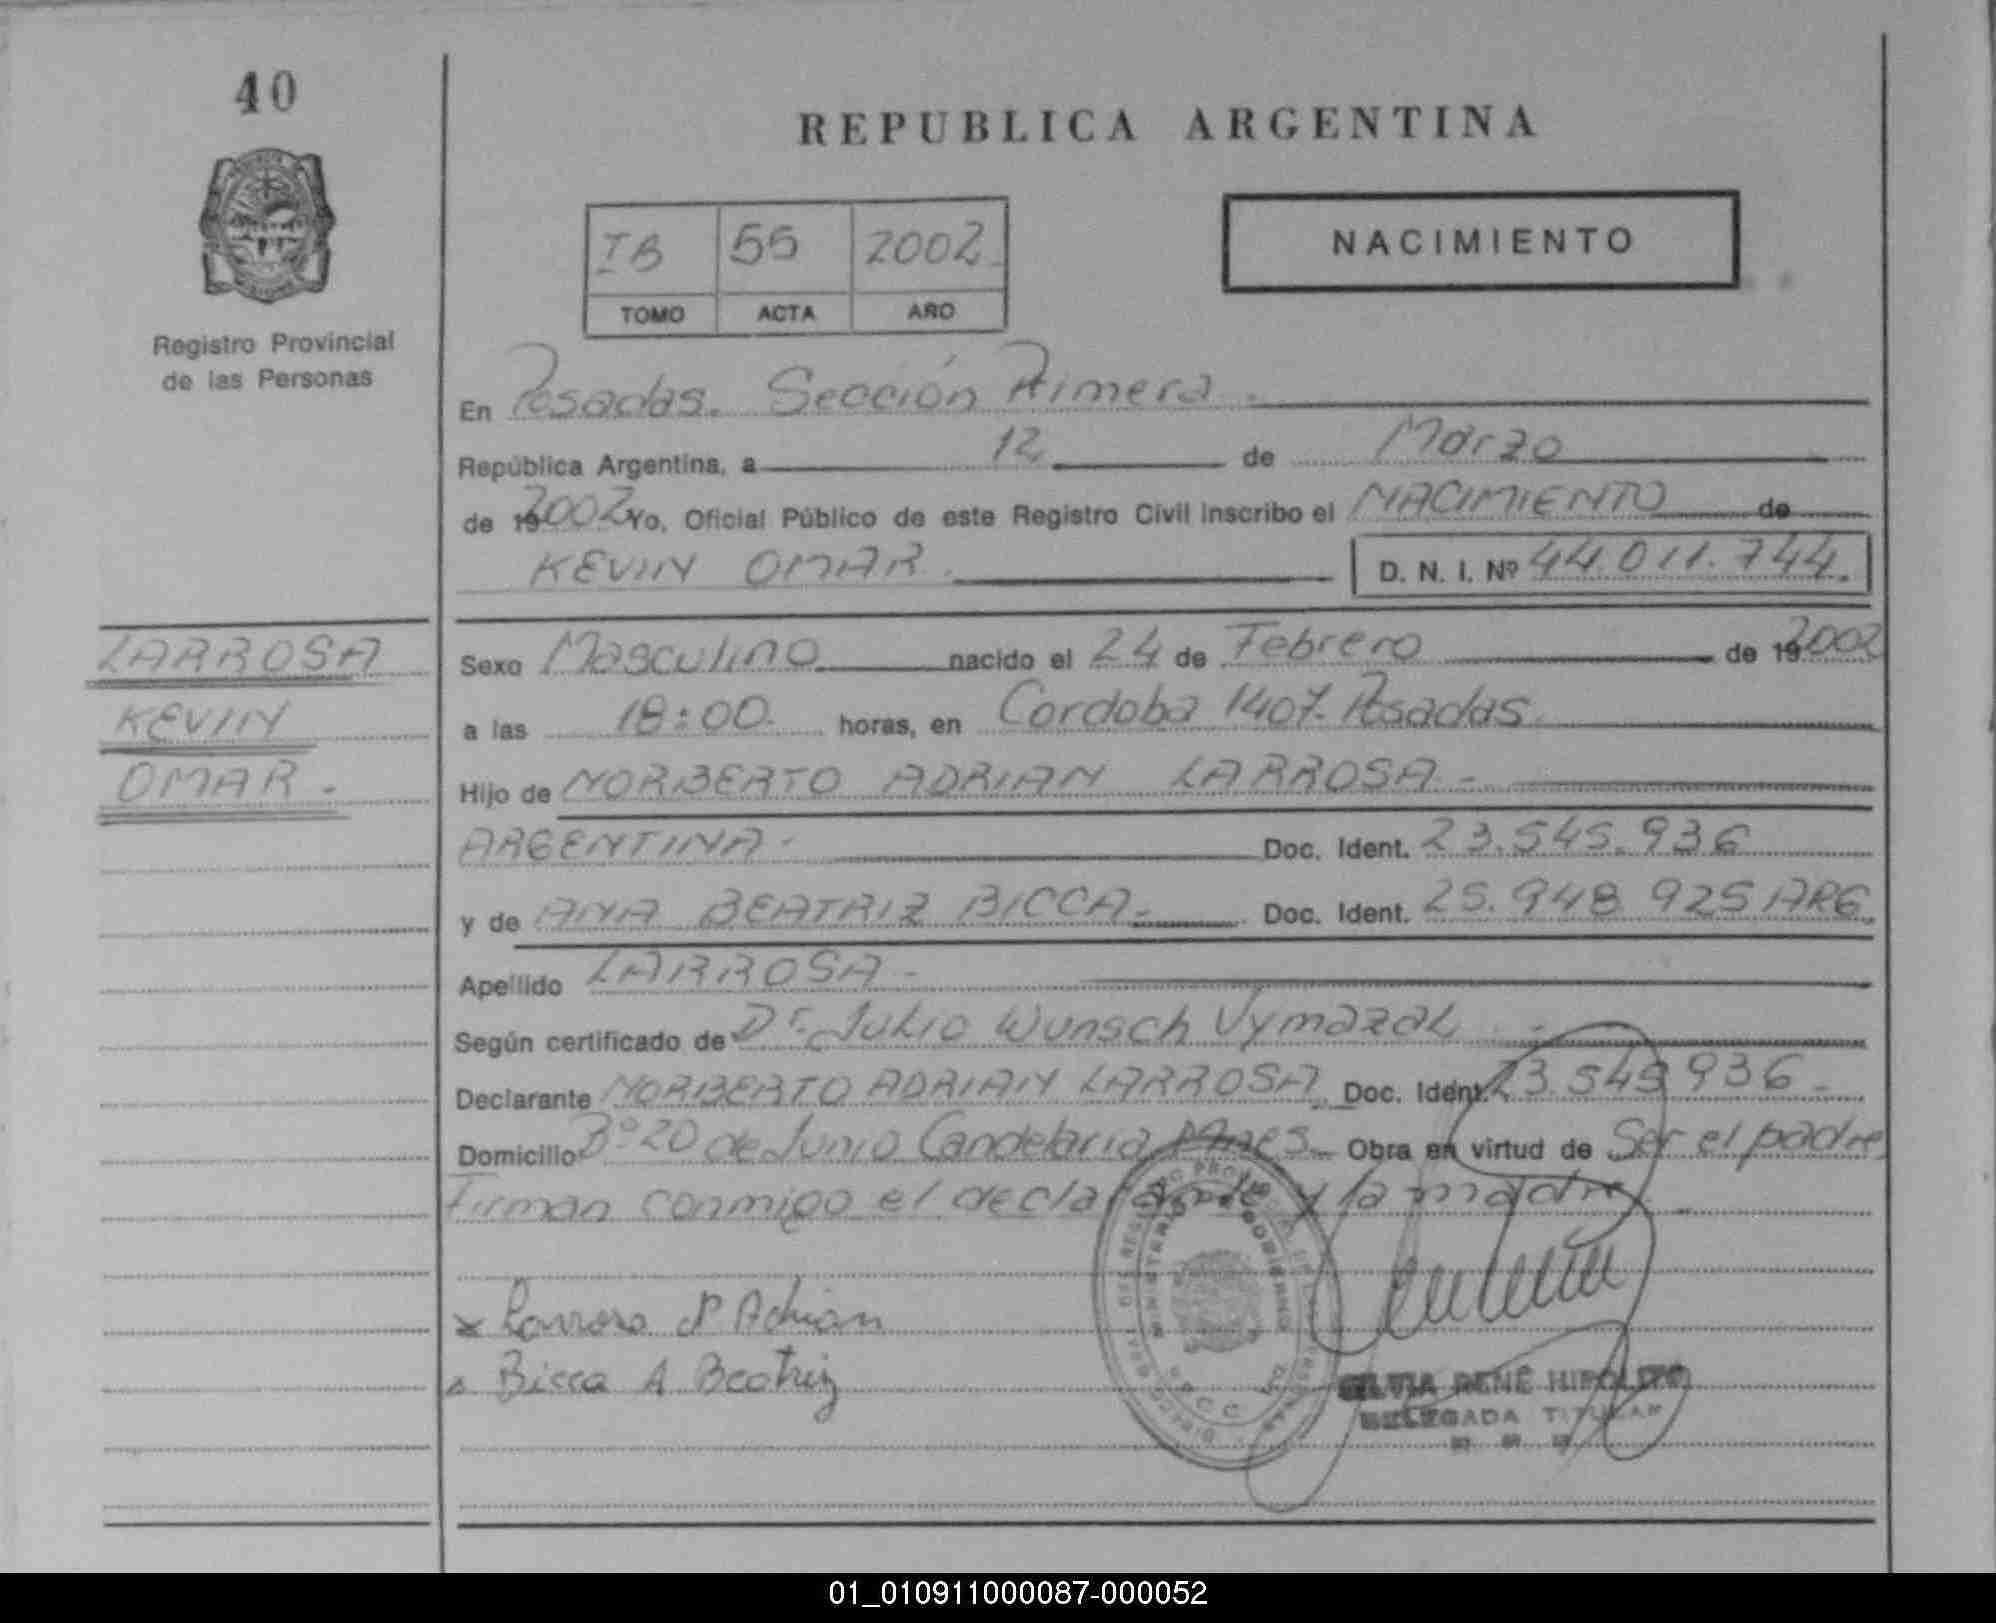 40
Registro Provincial
de las Personas
REPUBLICA ARGENTINA
IB 55 2002
TOMO ACTA AÑO
NACIMIENTO
En Posadas. Sección Primera.
República Argentina, a 12 de Marzo
de 19 2002 Yo, Oficial Público de este Registro Civil inscribo el NACIMIENTO de
KEVIN OMAR. D. N. I. Nº 44.011.744.
LARROSA
KEVIN
OMAR.
Sexo Masculino nacido el 24 de Febrero de 19 2002
a las 18:00. horas, en Cordoba 1407. Posadas.
Hijo de NORBERTO ADRIAN LARROSA -
ARGENTINA - Doc. Ident. 23.545.936
y de ANA BEATRIZ BICCA - Doc. Ident. 25.948.925 ARG.
Apellido LARROSA -
Según certificado de Dr. Julio Wunsch Vymazal
Declarante NORBERTO ADRIAN LARROSA Doc. Ident. 23.545.936 -
Domicilio Bº 20 de Junio Candelaria Mnes - Obra en virtud de Ser el padre
Firman conmigo el declarante y la madre
x Larrosa N Adrian
Bicca A Beatriz
MINISTERIO GOBIERNO
SILVIA RENÉ HIPOLITO
DELEGADA TITULAR
01_010911000087-000052